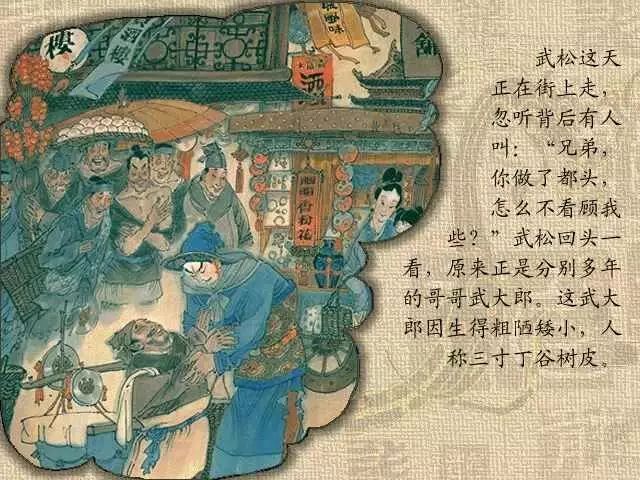 樓
酒樓
風味
酒
舖
香粉花
武松这天
正在街上走，
忽听背后有人
叫：“兄弟，
你做了都头，
怎么不看顾我
些？”武松回头一
看，原来正是分别多年
的哥哥武大郎。这武大
郎因生得粗陋矮小，人
称三寸丁谷树皮。